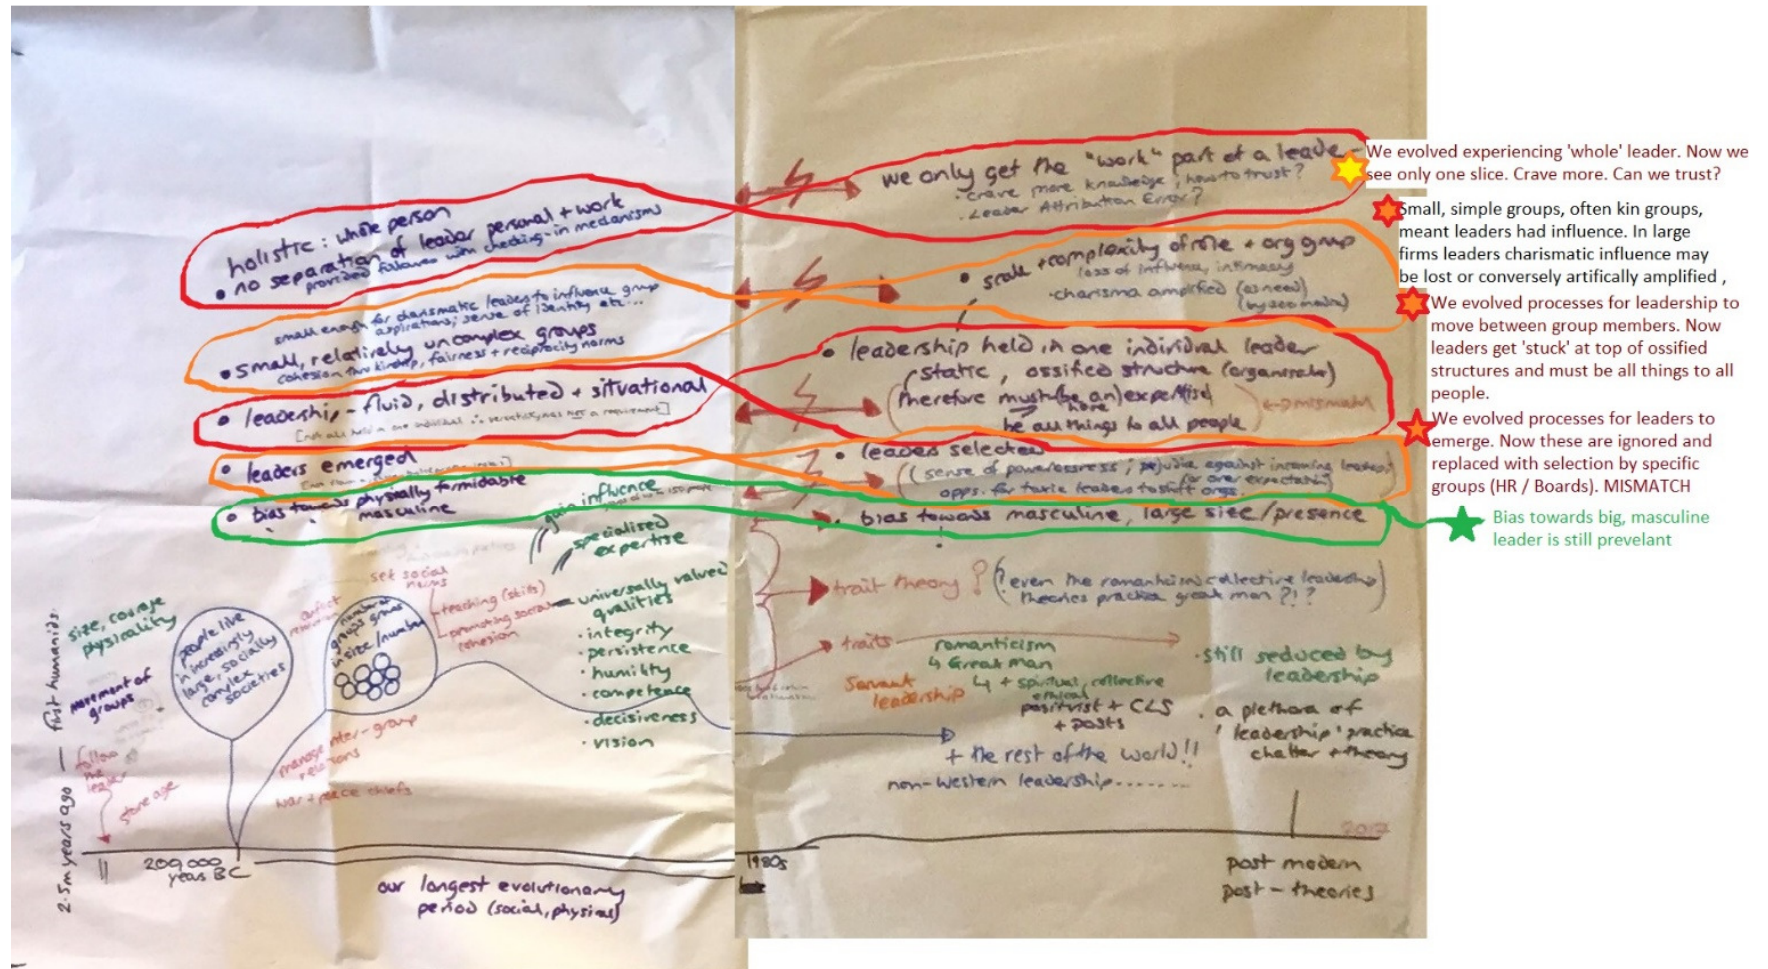 holistic : whole person
• no separation of leader personal + work
provided followers with checking-in mechanisms
small enough for charismatic leaders to influence group
aspirations; sense of identity etc...
• small, relatively uncomplex groups
cohesion thru kinship, fairness + reciprocity norms
• leadership - fluid, distributed + situational
[not all held in one individual ∴ versatility was NOT a requirement]
• leaders emerged
• bias towards physically formidable
" " masculine
gain influence
specialised
expertise
set social
norms
teaching (skills)
promoting social
cohesion
universally valued
qualities
· integrity
· persistence
· humility
· competence
· decisiveness
· vision
size, courage
physicality
movement of
groups
people live
in increasingly
large, socially
complex
societies
number of
groups grows
in size/number
manage inter-group
relations
war + peace chiefs
follow
the
leader
stone age
2.5m years ago — first humanoids
200,000
years BC
our longest evolutionary
period (social, physical)
we only get the "work" part of a leader
· crave more knowledge; how to trust?
· Leader Attribution Error?
• scale + complexity of role + org group
loss of influence, intimacy
· charisma amplified (as need)
(by seo media)
• leadership held in one individual leader
static, ossified structure (organisation)
therefore must (be an) expert(ise)
have
be all things to all people
↔ mismatch
• leaders selected
(sense of powerlessness; prejudice against incoming leaders;
(or over expectation)
opps. for toxic leaders to shift orgs.
• bias towards masculine, large size/presence
trait theory ? (? even the romanticism collective leadership
theories practice great man ?!?
traits
romanticism
↳ Great man
↳ + spiritual, collective
ethical
positivist + CLS
+ posts
Servant
leadership
· still seduced by
leadership
· a plethora of
'leadership' practice
chatter + theory
+ the rest of the world!!
non-western leadership........
1980s
2017
post modern
post - theories
We evolved experiencing 'whole' leader. Now we
see only one slice. Crave more. Can we trust?
Small, simple groups, often kin groups,
meant leaders had influence. In large
firms leaders charismatic influence may
be lost or conversely artifically amplified ,
We evolved processes for leadership to
move between group members. Now
leaders get 'stuck' at top of ossified
structures and must be all things to all
people.
We evolved processes for leaders to
emerge. Now these are ignored and
replaced with selection by specific
groups (HR / Boards). MISMATCH
Bias towards big, masculine
leader is still prevelant